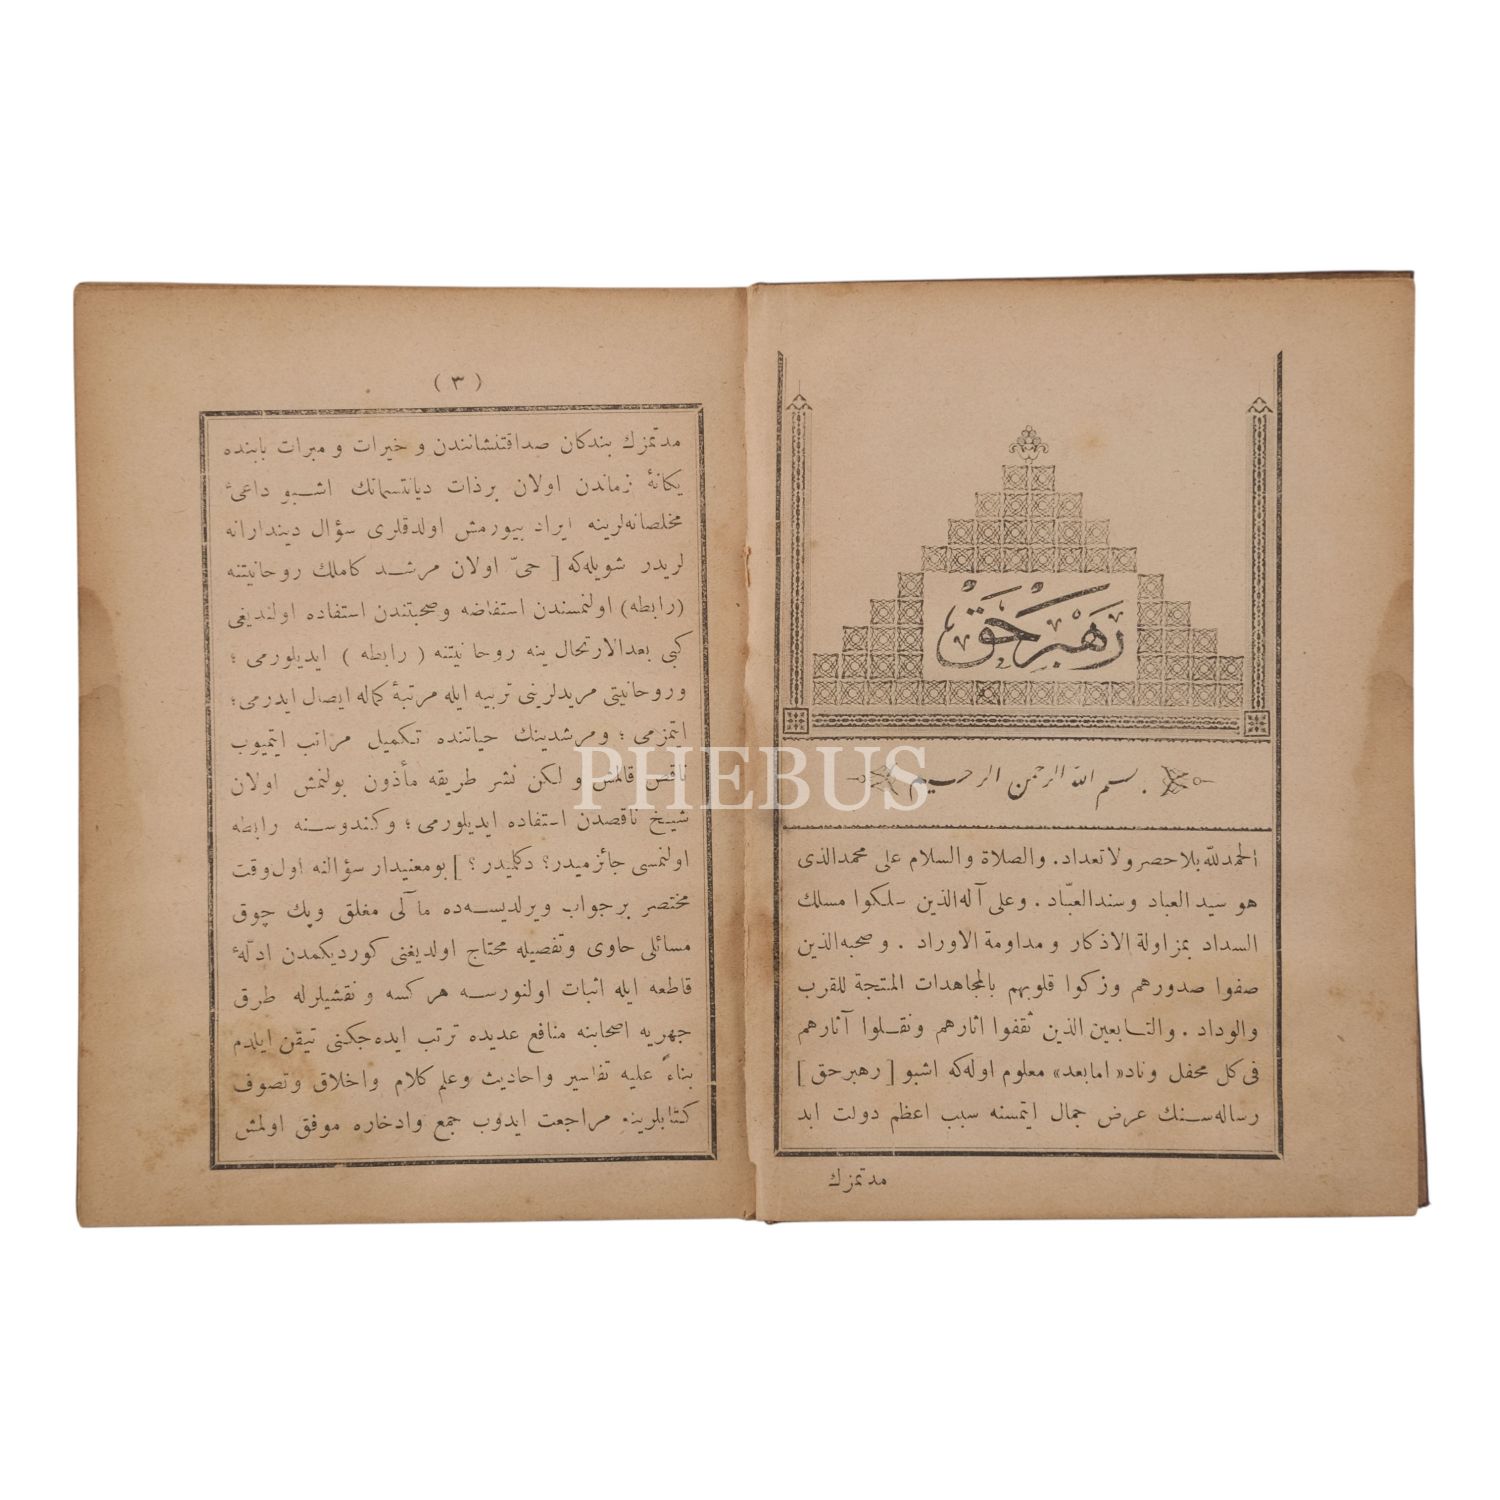 رهبر حق
بسم الله الرحمن الرحيم
الحمدلله بلا حصر ولا تعداد . والصلاة والسلام على محمد الذى
هو سيد العباد وسند العبّاد . وعلى آله الذين سلكوا مسلك
السداد بمزاولة الاذكار و مداومة الاوراد . و صحبه الذين
صفوا صدورهم وزكوا قلوبهم بالمجاهدات المنتجة للقرب
والوداد . والتابعين الذين ثقفوا اثارهم ونقلوا آثارهم
فى كل محفل وناد « امابعد » معلوم اوله كه اشبو [ رهبر حق ]
رساله سنك عرض جمال ايتمسنه سبب اعظم دولت ابد
مدتمزك
( ٣ )
مدتمزك بندكان صداقتنشانندن و خيرات و مبرات بابنده
يكانۀ زماندن اولان برذات ديانتسماتك اشبو داعئ
مخلصانه لرينه ايراد بيورمش اولدقلرى سؤال ديندارانه
لريدر شويله كه [ حىّ اولان مرشد كاملك روحانيتنه
(رابطه) اولنمسندن استفاضه وصحبتندن استفاده اولنديغى
كبى بعدالارتحال ينه روحانيتنه ( رابطه ) ايديلورمى ؛
وروحانيتى مريدلرينى تربيه ايله مرتبۀ كماله ايصال ايدرمى ؛
ايتمزمى ؛ ومرشدينك حياتنده تكميل مراتب ايتميوب
ناقص قالمش و لكن نشر طريقه مأذون بولنمش اولان
شيخ ناقصدن استفاده ايديلورمى ؛ وكندوسنه رابطه
اولنمسى جائزميدر ؟ دكلميدر ؟ ] بومعنيدار سؤالنه اول وقت
مختصر برجواب ويرلديسه ده مآلى مغلق وپك چوق
مسائلى حاوى وتفصيله محتاج اولديغنى كورديكمدن ادلۀ
قاطعه ايله اثبات اولنورسه هركسه و نقشيلرله طرق
جهريه اصحابنه منافع عديده ترتب ايده جكنى تيقن ايلدم
بناءً عليه تفاسير واحاديث وعلم كلام واخلاق وتصوف
كتابلرينه مراجعت ايدوب جمع وادخاره موفق اولمش
PHEBUS